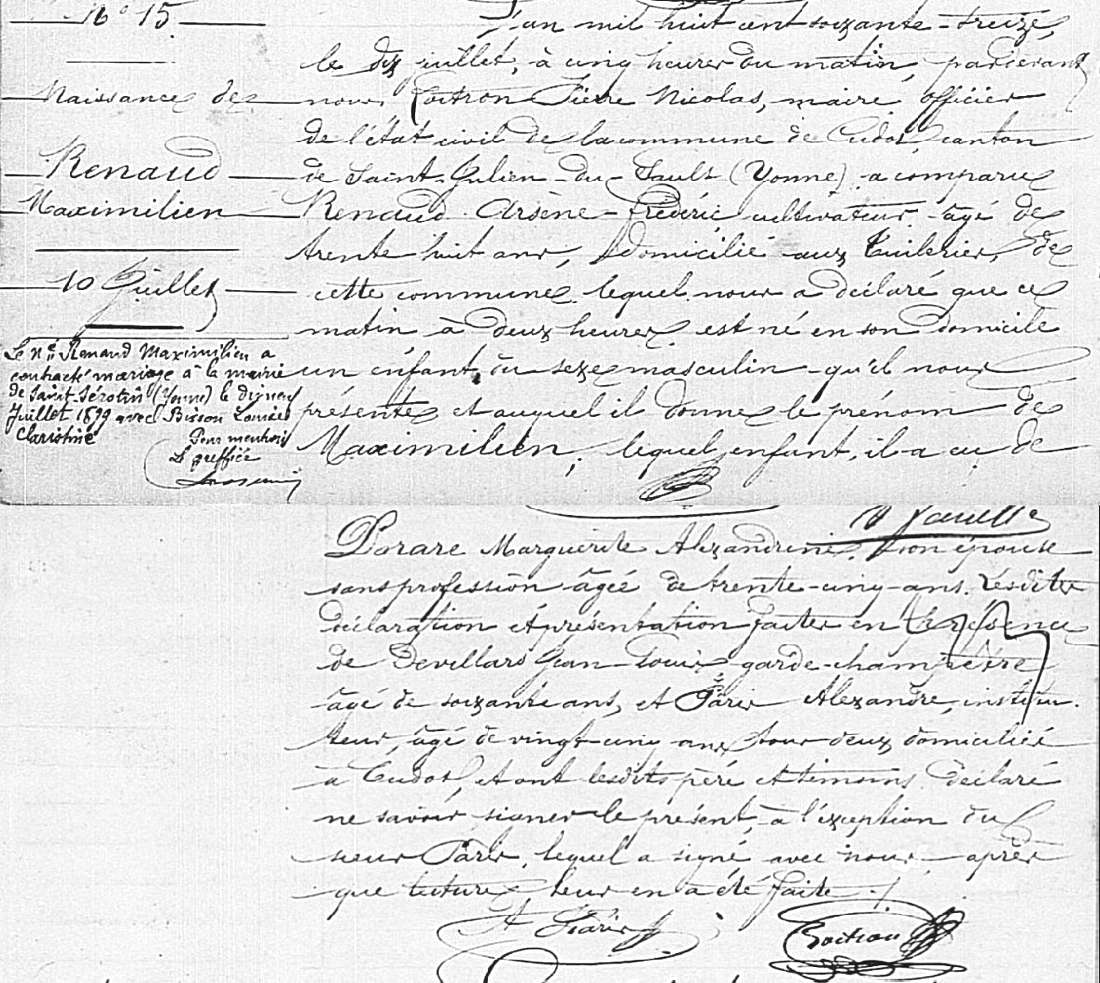 N° 15.
Naissance de
Renaud
Maximilien
10 Juillet
Le N.é Renaud Maximilien a
contracté mariage à la mairie
de Saint-Sérotin (Yonne) le dix neuf
Juillet 1899 avec Bisson Louise
Clarisine
Pour mention
Le greffier
L'an mil huit cent soixante-treize,
le dix juillet, à cinq heures du matin, pardevant
nous, Poitron Pierre Nicolas, maire officier
de l'état civil de la commune de Cudot, canton
de Saint-Julien-du-Sault (Yonne) a comparu
Renaud Arsène-Frédéric cultivateur âgé de
trente huit ans, domicilié aux Tuileries, de
cette commune, lequel nous a déclaré que ce
matin, à deux heures, est né en son domicile
un enfant du sexe masculin qu'il nous
présente, et auquel il donne le prénom de
Maximilien, lequel enfant, il a eu de
Marguerite Alexandrine, son épouse
sans profession âgée de trente-cinq ans. Lesdites
déclaration et présentation faites en la présence
de Devillars Jean-Louis garde-champêtre
âgé de soixante ans, et Pâris Alexandre, institu-
teur, âgé de vingt-cinq ans, tous deux domiciliés
à Cudot, et ont lesdits père et témoins déclaré
ne savoir signer le présent, à l'exception du
sieur Pâris, lequel a signé avec nous après
que lecture leur en a été faite ./.
A Pâris
Poitron